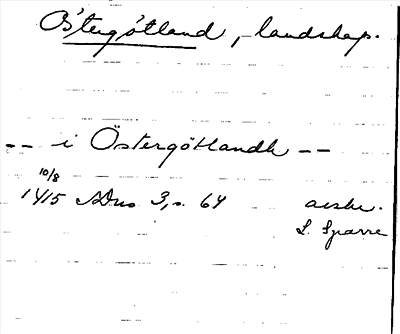 Östergötland, landskap.
-- i Östergötlandh --
10/8
1415 ADns 3, s. 64 avskr.
L. Sparre